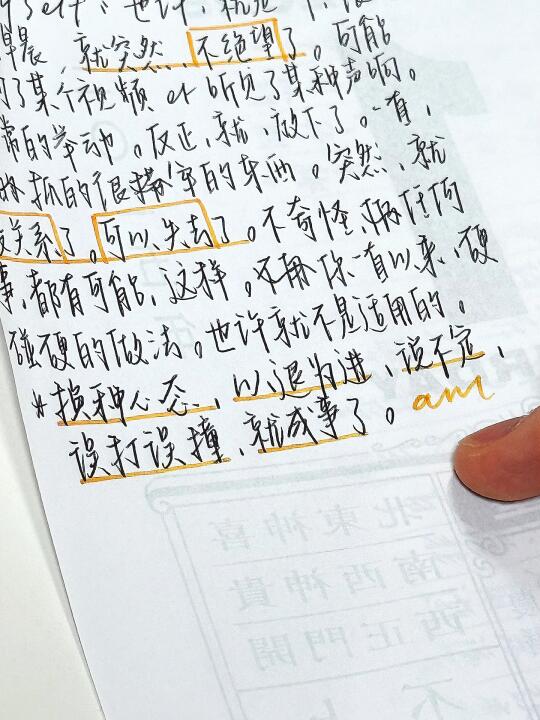 self：也许，就是
晨，就突然，不绝望了。可能
了某个视频 or 听见了某种声响。
常的举动。反正，就，放下了。一直，
抓的很撑牢的东西。突然，就
没关系了。可以失去了。不奇怪，做任何
事，都有可能，这样。不用你一直以来，硬
碰硬的做法。也许就不是适用的。
*换种心态，以退为进，说不定，
误打误撞，就成事了。am
喜神東北
貴神西南
開門正西
不